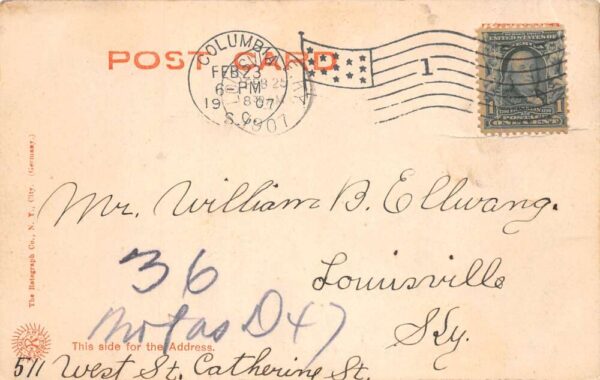 POST CARD
COLUMBIA
FEB 23
6 PM
1907
S.C.
1
UNITED STATES OF AMERICA
1 1
POSTAGE
ONE CENT
The Rotograph Co., N. Y. City. (Germany.)
Mr. William B. Ellwang.
Louisville
Ky.
36
D47
This side for the Address.
511 West St. Catherine St.